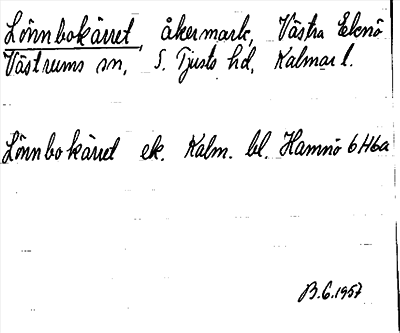 Lönnbokärret, åkermark, Västra Eknö
Västrums sn, S. Tjusts hd, Kalmar l.
Lönnbokärret ek. Kalm. bl. Hamnö 6H6a
B.G.1957